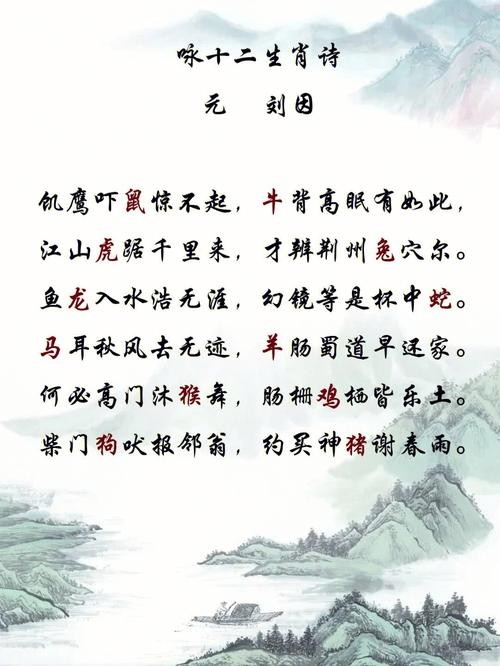 咏十二生肖诗
元 刘因
饥鹰吓鼠惊不起，牛背高眠有如此，
江山虎踞千里来，才辨荆州兔穴尔。
鱼龙入水浩无涯，幻镜等是杯中蛇。
马耳秋风去无迹，羊肠蜀道早还家。
何必高门沐猴舞，肠栅鸡栖皆乐土。
柴门狗吠报邻翁，约买神猪谢春雨。